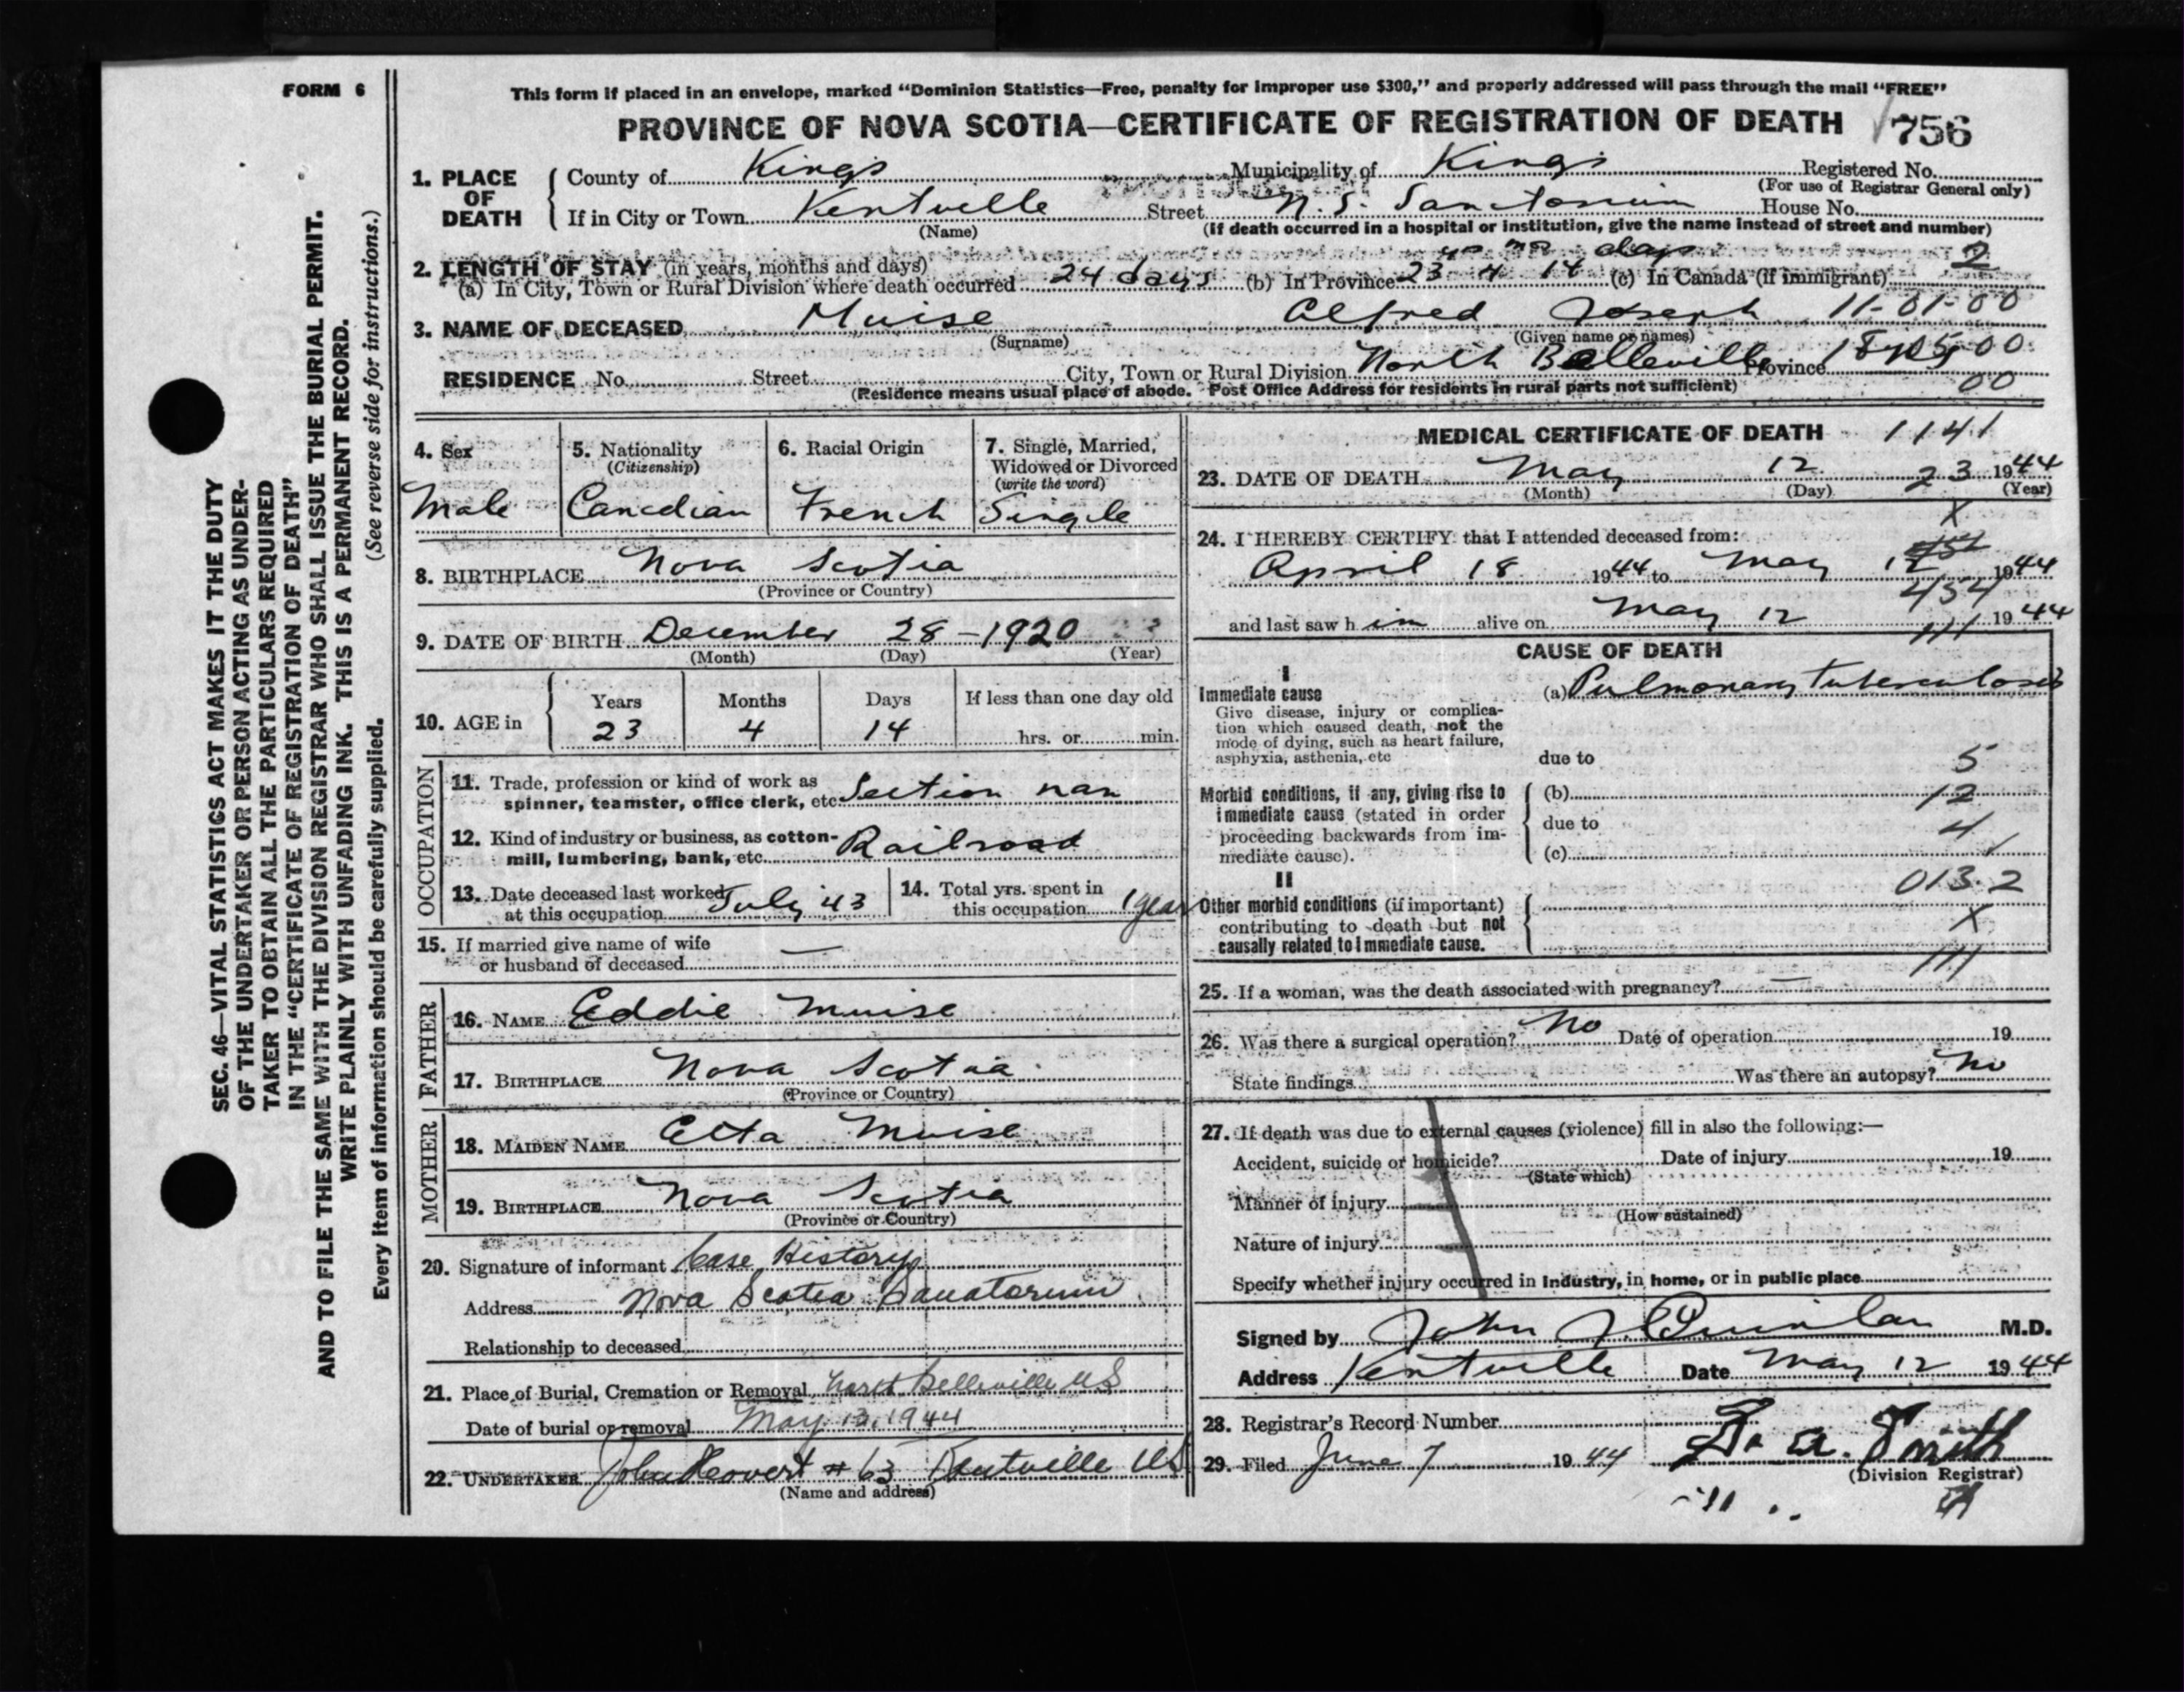 FORM 6
This form if placed in an envelope, marked "Dominion Statistics—Free, penalty for improper use $300," and properly addressed will pass through the mail "FREE"
PROVINCE OF NOVA SCOTIA—CERTIFICATE OF REGISTRATION OF DEATH 756
1. PLACE OF DEATH
County of Kings Municipality of Kings Registered No.
(For use of Registrar General only)
If in City or Town Kentville Street N. S. Sanatorium House No.
(Name) (If death occurred in a hospital or institution, give the name instead of street and number)
2. LENGTH OF STAY (in years, months and days)
(a) In City, Town or Rural Division where death occurred 24 days (b) In Province 23 4 14 days (c) In Canada (if immigrant) 2
3. NAME OF DECEASED Muise Alfred Joseph 11-01-00
(Surname) (Given name or names)
RESIDENCE No. Street City, Town or Rural Division North Belleville Province
00
(Residence means usual place of abode. Post Office Address for residents in rural parts not sufficient)
4. Sex
Male
5. Nationality
(Citizenship)
Canadian
6. Racial Origin
French
7. Single, Married,
Widowed or Divorced
(write the word)
Single
8. BIRTHPLACE Nova Scotia
(Province or Country)
9. DATE OF BIRTH December 28-1920
(Month) (Day) (Year)
10. AGE in
Years Months Days If less than one day old
23 4 14 hrs. or min.
OCCUPATION
11. Trade, profession or kind of work as
spinner, teamster, office clerk, etc. Section man
12. Kind of industry or business, as cotton-
mill, lumbering, bank, etc. Railroad
13. Date deceased last worked
at this occupation July '43
14. Total yrs. spent in
this occupation 1 year
15. If married give name of wife
or husband of deceased —
FATHER
16. NAME Eddie Muise
17. BIRTHPLACE Nova Scotia
(Province or Country)
MOTHER
18. MAIDEN NAME Etta Muise
19. BIRTHPLACE Nova Scotia
(Province or Country)
20. Signature of informant Case History
Address Nova Scotia Sanatorium
Relationship to deceased
21. Place of Burial, Cremation or Removal North Belleville NS
Date of burial or removal May 13, 1944
22. UNDERTAKER John # 63 Kentville NS
(Name and address)
MEDICAL CERTIFICATE OF DEATH 1141
23. DATE OF DEATH May 12 23 1944
(Month) (Day) (Year)
X
24. I HEREBY CERTIFY that I attended deceased from:
April 18 1944 to May 12 1944
454
and last saw him alive on May 12 1944
111
CAUSE OF DEATH
I
Immediate cause (a) Pulmonary Tuberculosis
Give disease, injury or complica-
tion which caused death, not the
mode of dying, such as heart failure,
asphyxia, asthenia, etc. due to 5
Morbid conditions, if any, giving rise to (b) 12
immediate cause (stated in order due to 4
proceeding backwards from im-
mediate cause). (c)
II 013.2
Other morbid conditions (if important)
contributing to death but not X
causally related to immediate cause.
111
25. If a woman, was the death associated with pregnancy? —
26. Was there a surgical operation? No Date of operation 19
State findings Was there an autopsy? No
27. If death was due to external causes (violence) fill in also the following:—
Accident, suicide or homicide? Date of injury 19
(State which)
Manner of injury
(How sustained)
Nature of injury
Specify whether injury occurred in industry, in home, or in public place
Signed by John J Quinlan M.D.
Address Kentville Date May 12 1944
28. Registrar's Record Number
29. Filed June 7 1944 Smith
(Division Registrar)
SEC. 46—VITAL STATISTICS ACT MAKES IT THE DUTY
OF THE UNDERTAKER OR PERSON ACTING AS UNDER-
TAKER TO OBTAIN ALL THE PARTICULARS REQUIRED
IN THE "CERTIFICATE OF REGISTRATION OF DEATH"
AND TO FILE THE SAME WITH THE DIVISION REGISTRAR WHO SHALL ISSUE THE BURIAL PERMIT.
WRITE PLAINLY WITH UNFADING INK. THIS IS A PERMANENT RECORD.
(See reverse side for instructions.)
Every item of information should be carefully supplied.